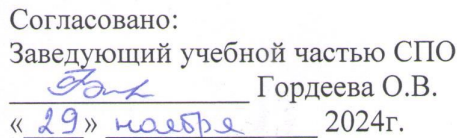 Согласовано:
Заведующий учебной частью СПО
Гордеева О.В.
« 29 » ноября 2024г.